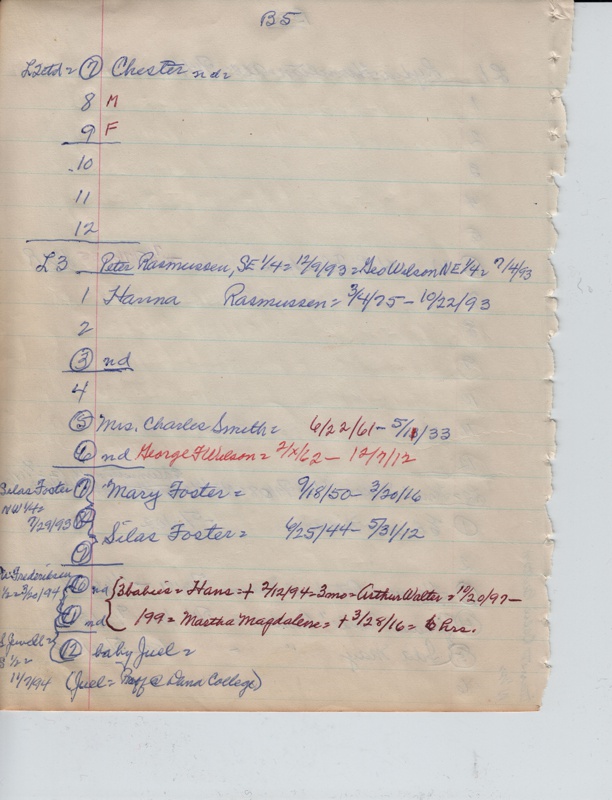 B5
L2ctd = 7 Chester nd=
8 M
9 F
10
11
12
L3 Peter Rasmussen, SE 1/4 = 12/9/93 = Geo Wilson NE 1/4 = 7/4/93
1 Hanna Rasmussen = 3/4/75 - 10/22/93
2
3 nd
4
5 Mrs. Charles Smith = 6/22/61 - 5/18/33
6 nd George F Wilson = 2/x/62 - 12/7/12
Silas Foster 7 Mary Foster = 9/18/50 - 3/20/16
NW 1/4 =
7/29/93 8 Silas Foster = 6/25/44 - 5/31/12
9
Frederiksen
1/2 = 3/20/94 10 nd 3 babies = Hans = + 2/12/94 = 3 mo = Arthur Walter = 10/20/97 -
11 nd 199 = Martha Magdalene = + 3/28/16 = 6 hrs.
S 1/2 = 12 baby Juel =
11/7/94 (Juel = Prof @ Dana College)